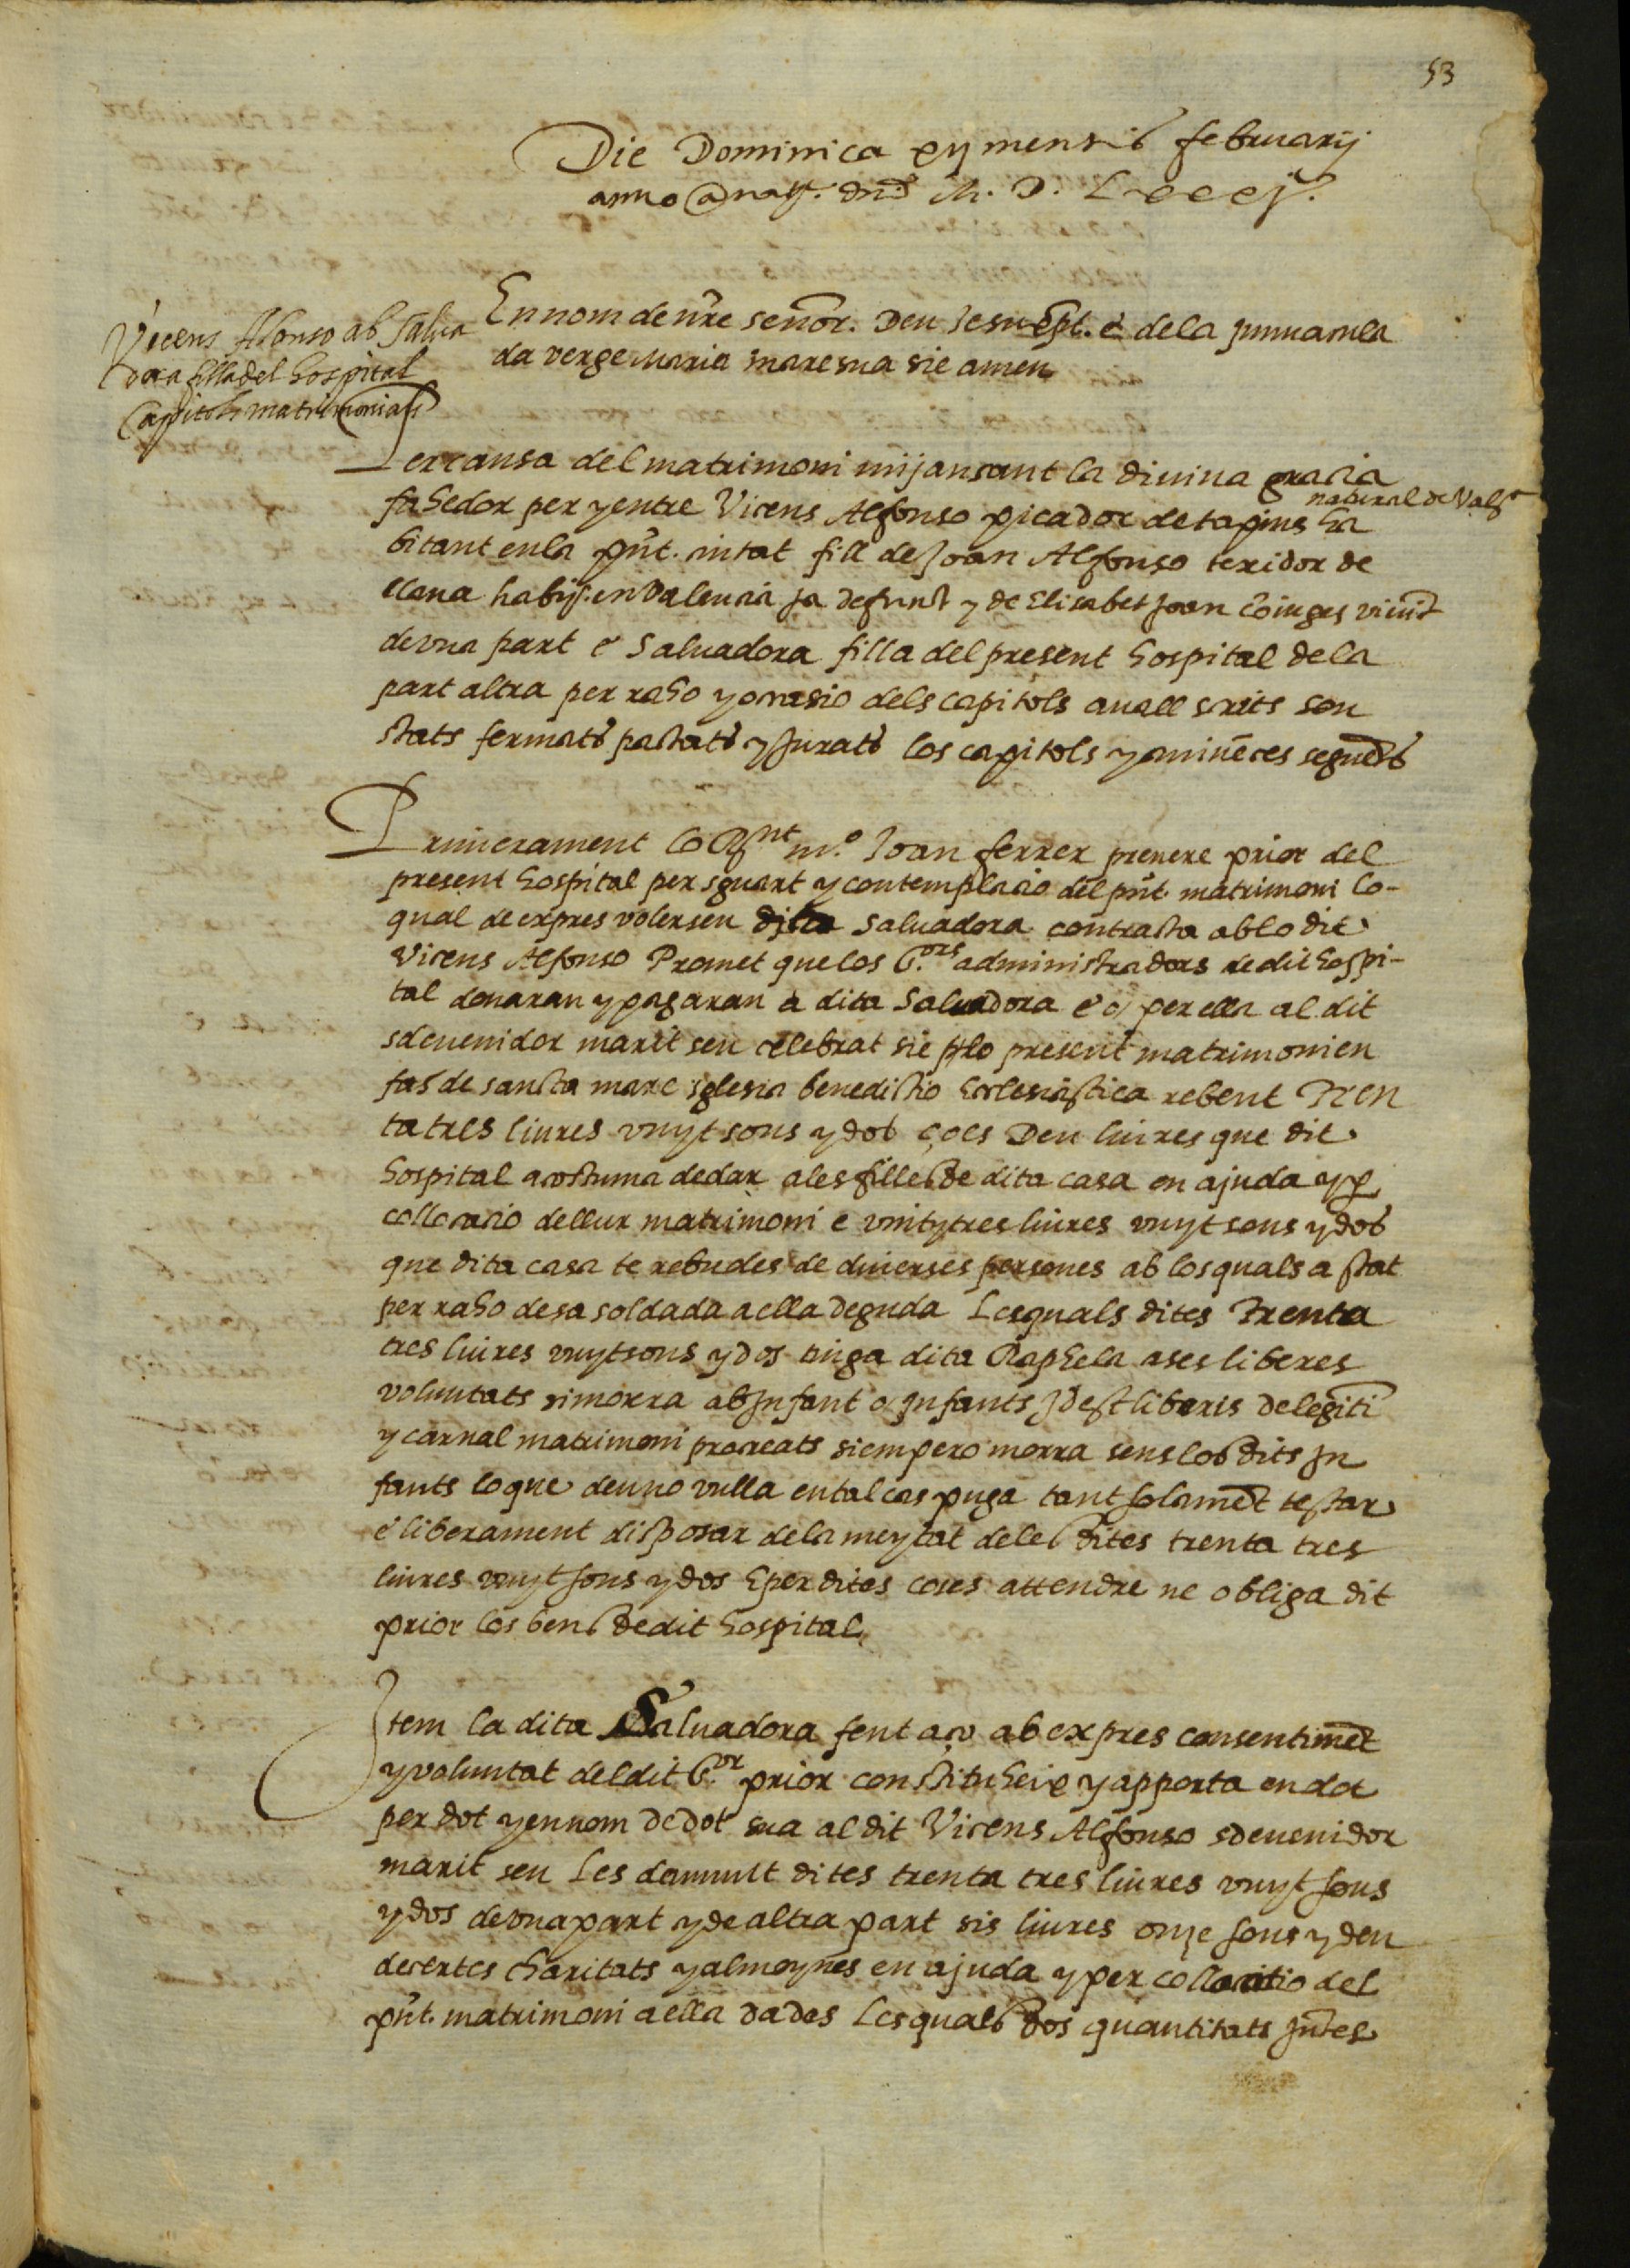 53
Die Dominica xij mensis februarij
anno a nat. dnj M. D. Lxxxj.
Vicens Alfonso ab Salua
dora filla del hospital
Capitols matrimonials
En nom de nre señor. Deu Jesu xpt. e de la jmmacula
da verge Maria mare sua sie amen
Per causa del matrimoni mijansant la diuina gracia
natural de Vala
fahedor per y entre Vicens Alfonso picador de tapins ha
bitant en la pnt. ciutat fill de Joan Alfonso texidor de
llana habit. en Valencia ja defunct y de Elisabet Joan coniuges viuint
de vna part e Saluadora filla del present hospital de la
part altra per raho y occasio dels capitols auall scrits son
stats fermats pactats y jurats los capitols y auinẽces seguẽts
Primerament lo Rnt mo. Joan ferrer preuere prior del
present hospital per sguart y contemplacio del pnt. matrimoni lo-
qual de expres voler seu dita Saluadora contracta ab lo dit
Vicens Alfonso Promet que los S.ors administradors de dit hospi-
tal donaran y pagaran a dita Saluadora e o per ella al dit
sdeuenidor marit seu celebrat sie p lo present matrimoni en
fas de sancta mare iglesia benedictio Ecclesiastica rebent Tren
ta tres liures vuyt sous y dos ço es Deu liures que dit
hospital acostuma de dar a les filles de dita casa en ajuda y p
collocacio de llur matrimoni e vint y tres liures vuyt sous y dos
que dita casa te rebudes de diuerses persones ab los quals a stat
per raho de sa soldada a ella deguda Les quals dites Trenta
tres liures vuyt sous y dos tinga dita Raphela a ses liberes
voluntats si morra ab jnfant o jnfants jdest liberis de legiti
y carnal matrimoni procreats si empero morra sens los dits jn
fants lo que deu no vulla en tal cas puga tant solamẽt testar
e liberament disposar de la meytat de les dites trenta tres
liures vuyt sous y dos E per dites coses attendre ne obliga dit
prior los bens de dit hospital.
Jtem la dita Saluadora fent aço ab expres consentimẽt
y voluntat del dit S.or prior constituheix y apporta en dot
per dot y en nom de dot sua al dit Vicens Alfonso sdeuenidor
marit seu Les damunt dites trenta tres liures vuyt sous
y dos de vna part y de altra part sis liures onze sous y deu
de certes charitats y almoynes en ajuda y per collocatio del
pnt. matrimoni a ella dades Les quals dos quantitats jntes